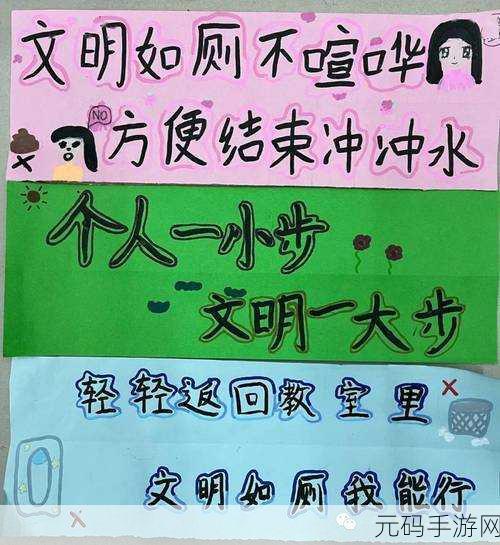 文明如厕不喧哗
NO
方便结束冲冲水
个人一小步
文明一大步
轻轻返回教室里
文明如厕我能行
元码手游网